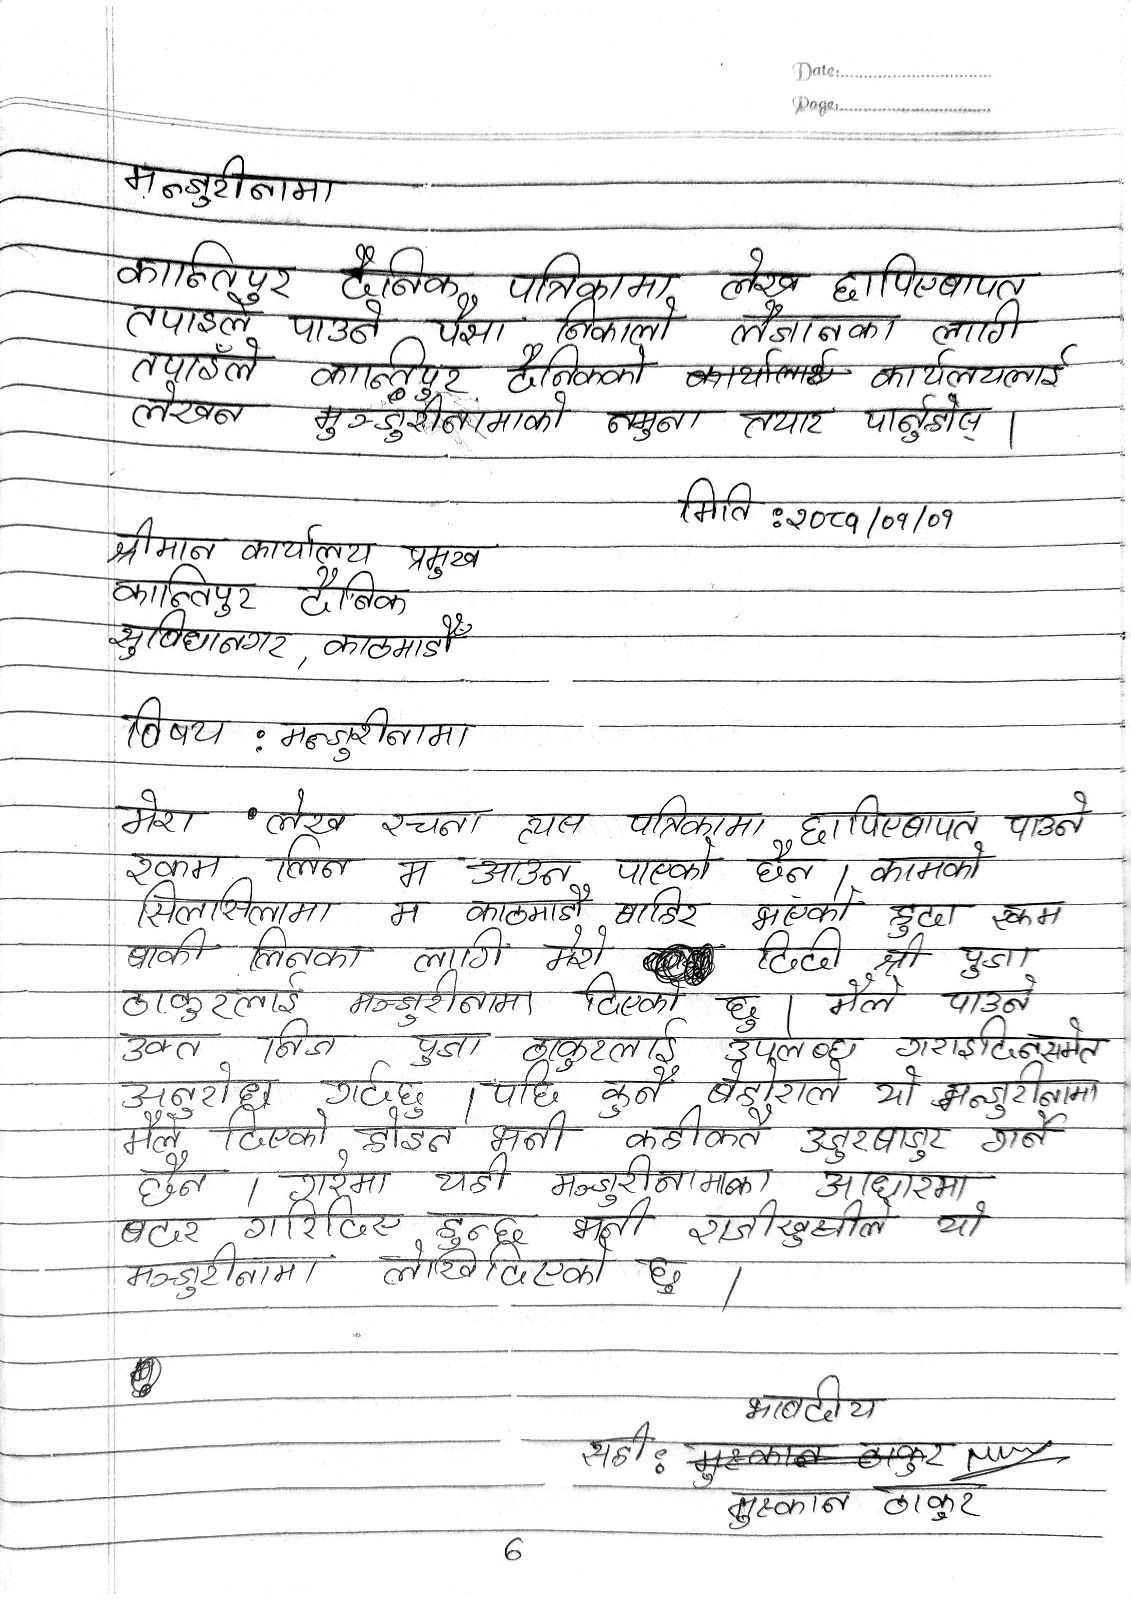 Date:
Page:
मन्जुरीनामा
कान्तिपुर दैनिक पत्रिकामा लेख छापिएबापत
तपाइले पाउने पैसा निकालो लैजानका लागि
तपाइँले कान्तिपुर दैनिकको कार्यालयलाई
लेखन मुञ्जुरीनामाको नमुना तयार पार्नुहोस् ।
मिति : २०८१/०१/०१
श्रीमान कार्यालय प्रमुख
कान्तिपुर दैनिक
सुविधानगर, काठमाडौँ
विषय : मन्जुरीनामा
मेरा लेख रचना त्यस पत्रिकामा छापिएबापत पाउने
रकम लिन म आउन पाएको छैन । कामको
सिलसिलामा म काठमाडौँ बाहिर भएको हुदा रकम
बाकी लिनका लागि मेरो दिदी श्री पुजा
ठाकुरलाई मञ्जुरीनामा दिएको छु । मैले पाउने
उक्त निज पुजा ठाकुरलाई उपलब्ध गराइदिनसमेत
अनुरोध गर्दछु । पछि कुनै बेहोराले यो मन्जुरीनामा
मैले दिएको होइन भनी कहीकतै उजुरबाजुर गर्ने
छैन । गरेमा यही मञ्जुरीनामाका आधारमा
बदर गरिदिए हुन्छ भनी राजीखुशीले यो
मञ्जुरीनामा लेखिदिएको छु ।
भाबदीय
सही : मुस्कान ठाकुर
मुस्कान ठाकुर
6